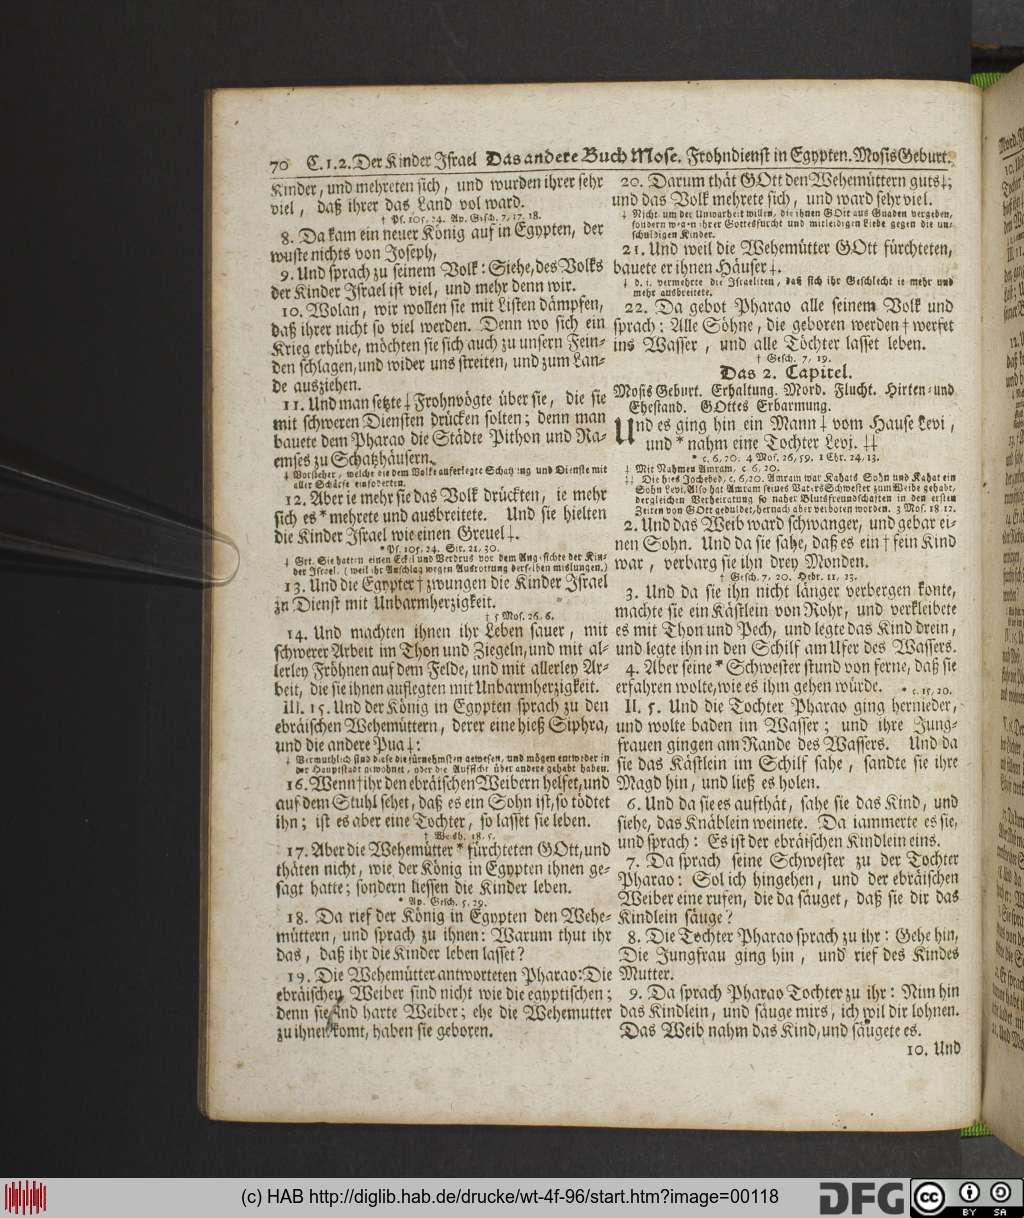 70 C.1.2. Der Kinder Israel Das andere Buch Mose. Frohndienst in Egypten. Mosis Geburt.
Kinder, und mehreten sich, und wurden ihrer sehr
viel, daß ihrer das Land vol ward.
† Ps. 105, 24. Ap. Gesch. 7, 17. 18.
8. Da kam ein neuer König auf in Egypten, der
wuste nichts von Joseph,
9. Und sprach zu seinem Volk: Siehe, des Volks
der Kinder Israel ist viel, und mehr denn wir.
10. Wolan, wir wollen sie mit Listen dämpfen,
daß ihrer nicht so viel werden. Denn wo sich ein
Krieg erhübe, möchten sie sich auch zu unsern Fein-
den schlagen, und wider uns streiten, und zum Lan-
de ausziehen.
11. Und man setzte ⸸ Frohnvögte über sie, die sie
mit schweren Diensten drücken solten; denn man
bauete dem Pharao die Städte Pithon und Ra-
emses zu Schatzhäusern.
⸸ Vorsteher, welche die dem Volke auferlegte Schatzung und Dienste mit
aller Schärfe einfoderten.
12. Aber ie mehr sie das Volk drückten, ie mehr
sich es * mehrete und ausbreitete. Und sie hielten
die Kinder Israel wie einen Greuel ⸸.
* Ps. 105, 24. Sir. 21, 30.
⸸ Grt. Sie hatten einen Eckel und Verdrus vor dem Angesichte der Kin-
der Israel. (weil ihr Anschlag wegen Ausrottung derselben mislungen.)
13. Und die Egypter † zwungen die Kinder Israel
zu Dienst mit Unbarmherzigkeit.
† 5 Mos. 26, 6.
14. Und machten ihnen ihr Leben sauer, mit
schwerer Arbeit im Thon und Ziegeln, und mit al-
lerley Fröhnen auf dem Felde, und mit allerley Ar-
beit, die sie ihnen auflegten mit Unbarmherzigkeit.
III. 15. Und der König in Egypten sprach zu den
ebräischen Wehemüttern, derer eine hieß Siphra,
und die andere Pua ⸸:
⸸ Vermuthlich sind diese die fürnehmsten gewesen, und mögen entweder in
der Hauptstadt gewohnet, oder die Aufsicht über andere gehabt haben.
16. Wenn † ihr den ebräischen Weibern helfet, und
auf dem Stuhl sehet, daß es ein Sohn ist, so tödtet
ihn; ist es aber eine Tochter, so lasset sie leben.
† Weish. 18, 5.
17. Aber die Wehemütter * fürchteten GOtt, und
thäten nicht, wie der König in Egypten ihnen ge-
sagt hatte; sondern liessen die Kinder leben.
* Ap. Gesch. 5, 29.
18. Da rief der König in Egypten den Wehe-
müttern, und sprach zu ihnen: Warum thut ihr
das, daß ihr die Kinder leben lasset?
19. Die Wehemütter antworteten Pharao: Die
ebräischen Weiber sind nicht wie die egyptischen;
denn sie sind harte Weiber; ehe die Wehemutter
zu ihnen komt, haben sie geboren.
20. Darum thät GOtt den Wehemüttern guts ⸸;
und das Volk mehrete sich, und ward sehr viel.
⸸ Nicht um der Unwarheit willen, die ihnen GOtt aus Gnaden vergeben,
sondern wegen ihrer Gottesfurcht und mitleidigen Liebe gegen die un-
schuldigen Kinder.
21. Und weil die Wehemütter GOtt fürchteten,
bauete er ihnen Häuser ⸸.
⸸ d. i. vermehrte die Israeliten, daß sich ihr Geschlecht ie mehr und
mehr ausbreitete.
22. Da gebot Pharao alle seinem Volk und
sprach: Alle Söhne, die geboren werden † werfet
ins Wasser, und alle Töchter lasset leben.
† Gesch. 7, 19.
Das 2. Capitel.
Mosis Geburt. Erhaltung. Mord. Flucht. Hirten- und
Ehestand. GOttes Erbarmung.
Und es ging hin ein Mann ⸸ vom Hause Levi,
und * nahm eine Tochter Levi. ⸸⸸
* c. 6, 20. 4 Mos. 26, 59. 1 Chr. 24, 13.
⸸ Mit Nahmen Amram, c. 6, 20.
⸸⸸ Die hies Jochebed, c. 6, 20. Amram war Kahats Sohn und Kahat ein
Sohn Levi. Also hat Amram seines Vaters Schwester zum Weibe gehabt,
dergleichen Verheiratung so naher Blutsfreundschaften in den ersten
Zeiten von GOtt geduldet, hernach aber verboten worden. 3 Mos. 18, 12.
2. Und das Weib ward schwanger, und gebar ei-
nen Sohn. Und da sie sahe, daß es ein † fein Kind
war, verbarg sie ihn drey Monden.
† Gesch. 7, 20. Hebr. 11, 23.
3. Und da sie ihn nicht länger verbergen konte,
machte sie ein Kästlein von Rohr, und verkleibete
es mit Thon und Pech, und legte das Kind drein,
und legte ihn in den Schilf am Ufer des Wassers.
4. Aber seine * Schwester stund von ferne, daß sie
erfahren wolte, wie es ihm gehen würde. * c. 15, 20.
II. 5. Und die Tochter Pharao ging hernieder,
und wolte baden im Wasser; und ihre Jung-
frauen gingen am Rande des Wassers. Und da
sie das Kästlein im Schilf sahe, sandte sie ihre
Magd hin, und ließ es holen.
6. Und da sie es aufthät, sahe sie das Kind, und
siehe, das Knäblein weinete. Da iammerte es sie,
und sprach: Es ist der ebräischen Kindlein eins.
7. Da sprach seine Schwester zu der Tochter
Pharao: Sol ich hingehen, und der ebräischen
Weiber eine rufen, die da säuget, daß sie dir das
Kindlein säuge?
8. Die Tochter Pharao sprach zu ihr: Gehe hin,
Die Jungfrau ging hin, und rief des Kindes
Mutter.
9. Da sprach Pharao Tochter zu ihr: Nim hin
das Kindlein, und säuge mirs, ich wil dir lohnen.
Das Weib nahm das Kind, und säugete es.
10. Und
(c) HAB http://diglib.hab.de/drucke/wt-4f-96/start.htm?image=00118
DFG
cc BY SA